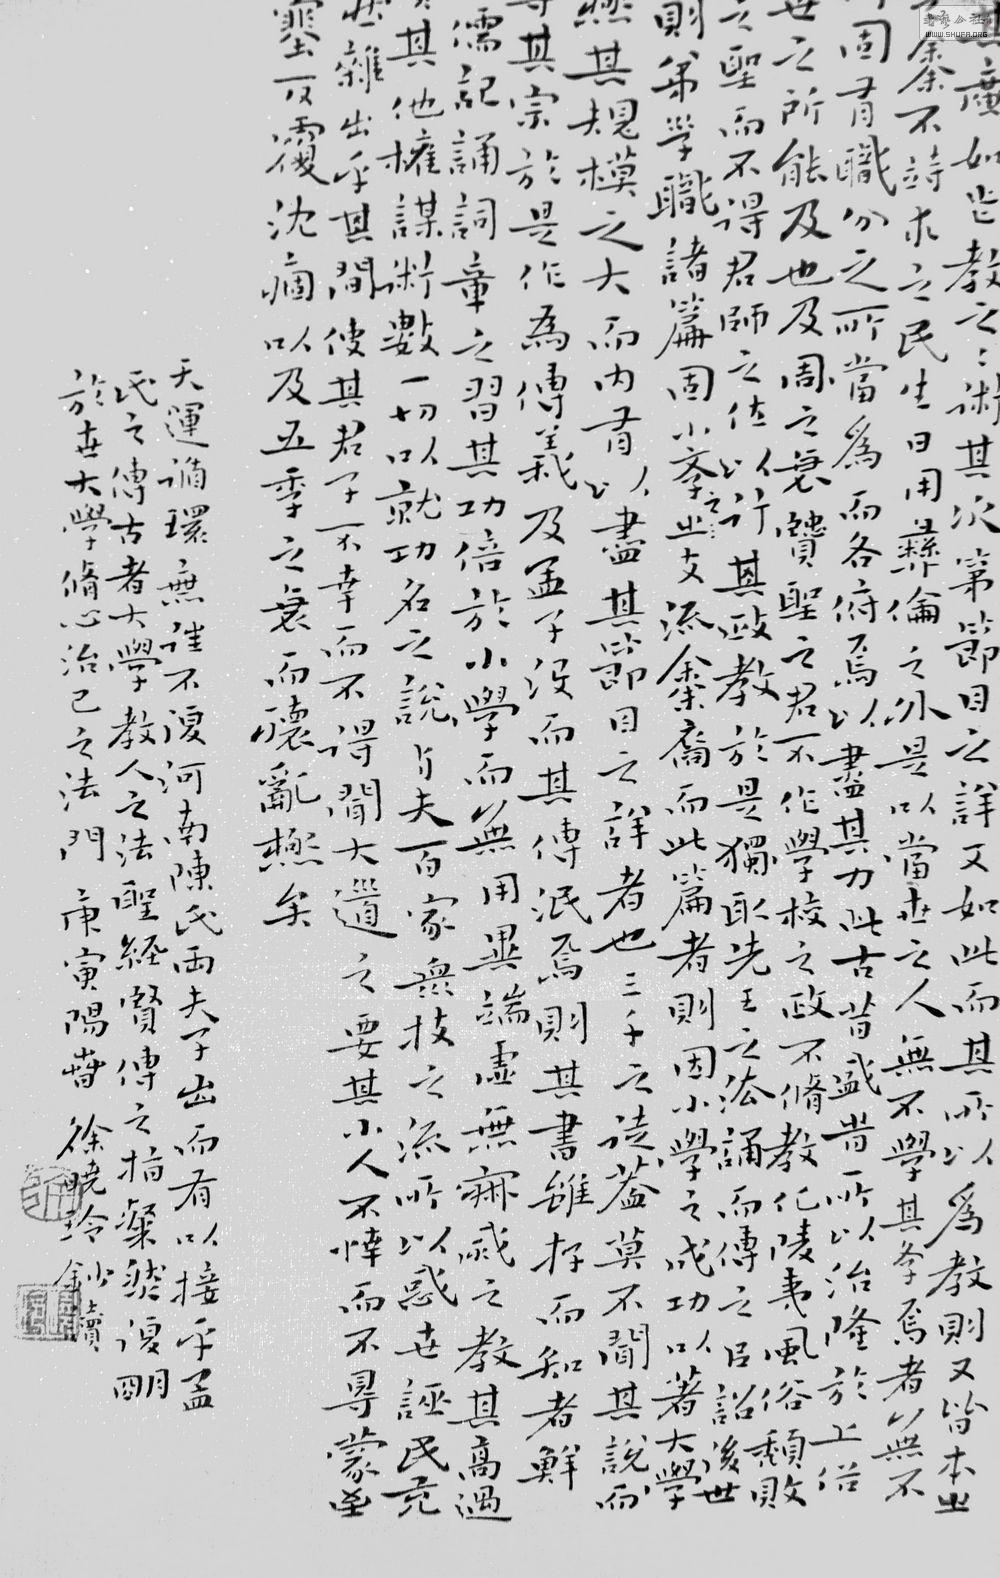 其廣如此教之之術其次第節目之詳又如此而其所以為教則又皆本之
餘不待求之民生日用彝倫之外是以當世之人無不學其學焉者無不
固有職分之所當為而各俯焉以盡其力此古昔盛昔所以治隆於上俗
世之所能及也及周之衰賢聖之君不作學校之政不脩教化陵夷風俗頹敗
之聖而不得君師之位以行其政教於是獨取先王之法誦而傳之臣詔後世
則弟学職諸篇固小學之支流餘裔而此篇者則因小學之成功以著大學
極其規模之大而内有以盡其節目之詳者也三千之徒蓋莫不聞其說而
其宗於是作為傳義及孟子没而其傳泯焉則其書雖存而知者鮮
儒記誦詞章之習其功倍於小學而無用異端虛無寂滅之教其高過
其他權謀術數一切以就功名之說与夫百家眾技之流所以惑世誣民充
雜出乎其間使其君子不幸而不得聞大道之要其小人不幸而不得蒙至
塞反覆沈痼以及五季之衰而壞亂極矣
天運循環無往不復河南陳氏兩夫子出而有以接乎孟
氏之傳古者大學教人之法聖経賢傳之指粲然復明
於世大學脩心治己之法門 庚寅陽春 徐曉玲鈔讀
WWW.SHUFA.ORG